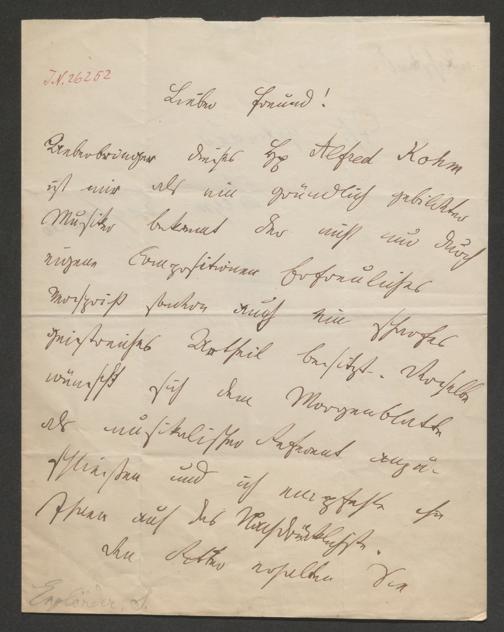 I.N. 26252
Lieber Freund!
Ueberbringer dieses H Alfred Kohm
ist mir als ein gründlich gebildeter
Musiker bekannt der nicht nur durch
eigene Compositionen Erfreuliches
verspricht sondern auch ein scharfes
geistreiches Urtheil besitzt. Derselbe
wünscht sich dem Morgenblatte
als musikalischer Referent anzu-
schließen und ich empfehle ihn
Ihnen auf das Nachdrücklichste.
den erhalten Sie
Engländer